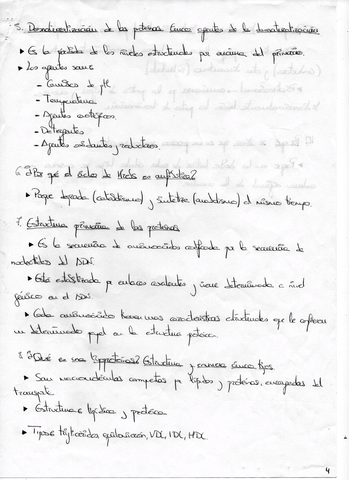 5. Desnaturalización de las proteínas. Cinco agentes de la desnaturalización
▸ Es la pérdida de los niveles estructurales por encima del primario.
▸ Los agentes son:
- Cambios de pH
- Temperatura
- Agentes
- Detergentes
- Agentes oxidantes y reductores.
6. ¿Por qué el ciclo de Krebs es anfibólico?
▸ Porque degrada (catabolismo) y sintetiza (anabolismo) al mismo tiempo.
7. Estructura primaria de las proteínas
▸ Es la secuencia de aminoácidos codificada por la secuencia de
nucleótidos del ADN.
▸ Está estabilizada por enlaces covalentes y viene determinada a nivel
génico en el ADN.
▸ Cada aminoácido tiene unas características estructurales que le confieren
un determinado papel en la estructura proteica.
8. ¿Qué es una lipoproteína? Estructura y tipos
▸ Son macromoléculas compuestas por lípidos y proteínas, encargadas del
transporte
▸ Estructura: lipídica y proteica
▸ Tipos: quilomicrón, VLDL, IDL, HDL
4